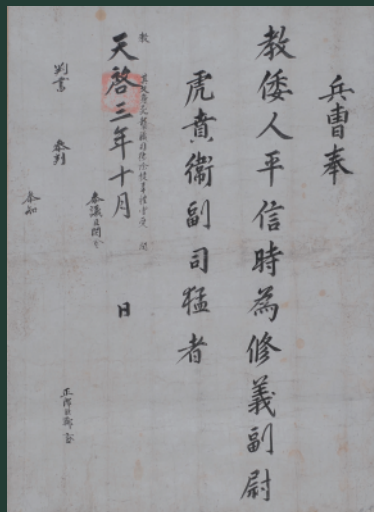 兵曹奉
教倭人平信時為修義副尉
虎賁衛副司猛者
天啓三年十月 日
教
判書 參判
參知
參議
正郎